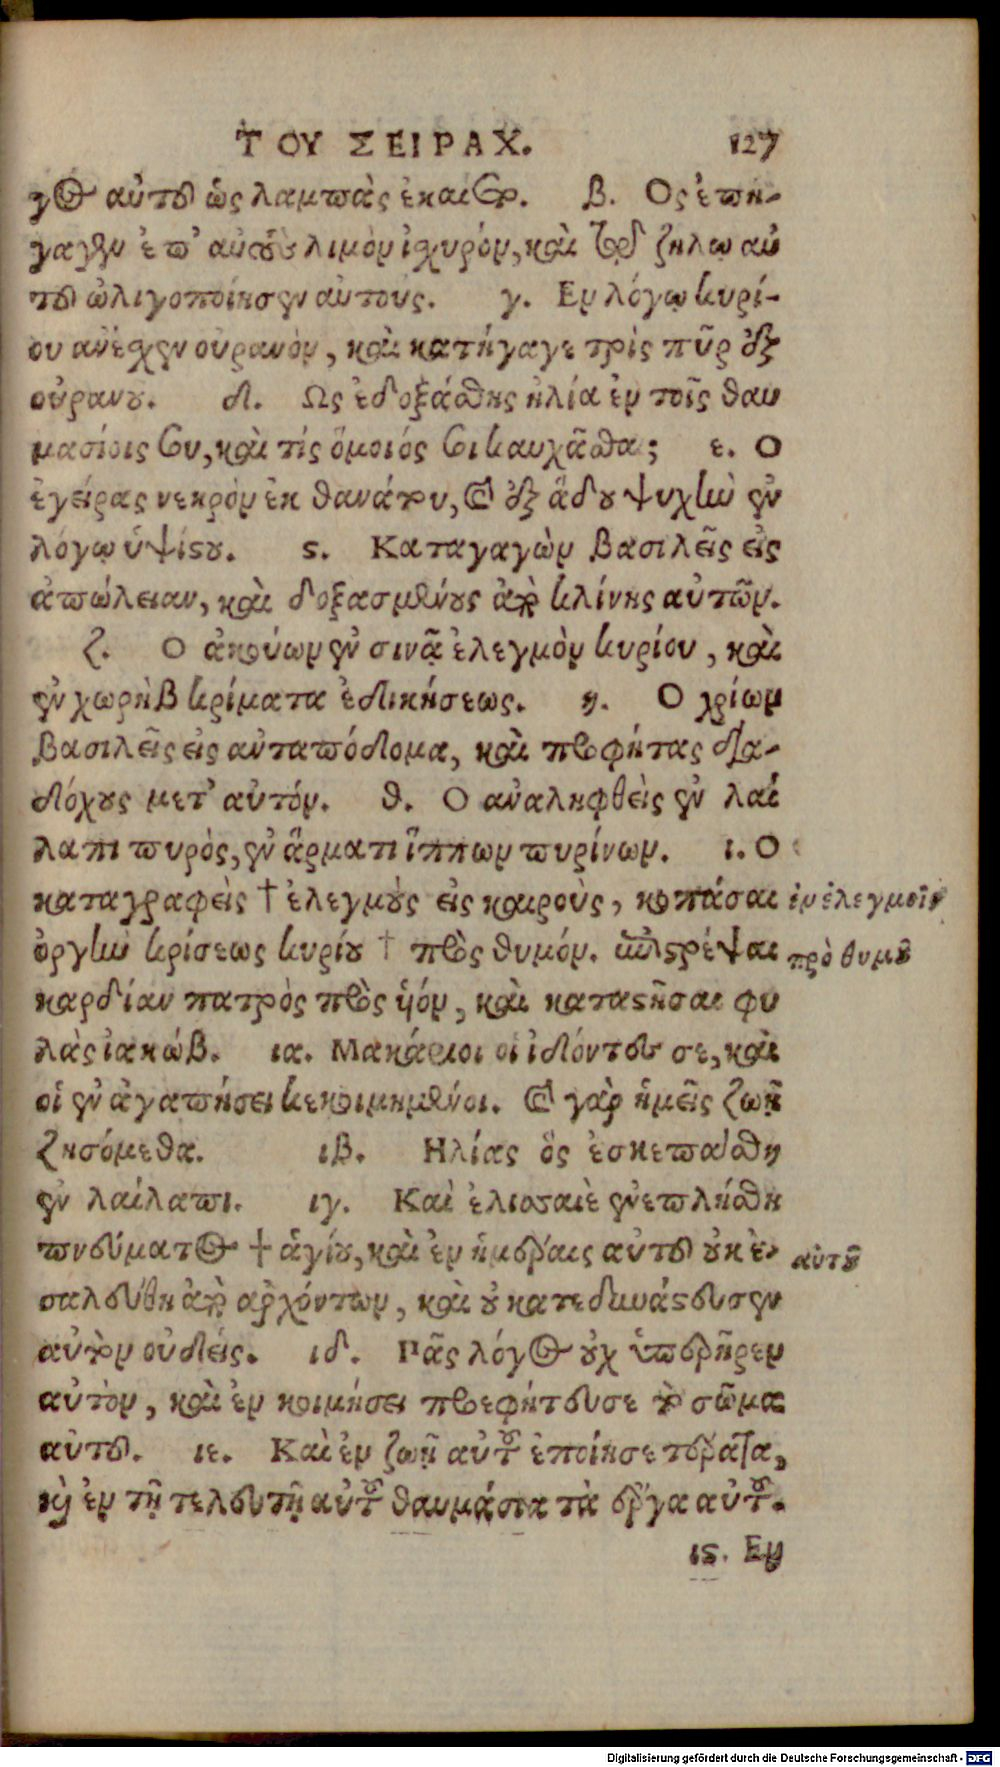 ΤΟΥ ΣΕΙΡΑΧ. 127
γος αὐτοῦ ὡς λαμπὰς ἐκαίετο. β. Ος ἐπή-
γαγεν ἐπ' αὐτοὺς λιμὸν ἰσχυρόν, καὶ τῷ ζηλῳ αὐ
τοῦ ὠλιγοποίησεν αὐτούς. γ. Εν λόγῳ κυρί-
ου ἀνέσχεν οὐρανὸν, καὶ κατήγαγε τρὶς πῦρ ἐξ
οὐρανοῦ. δ. Ως ἐδοξάσθης ἠλία ἐν τοῖς θαυ
μασίοις σου, καὶ τίς ὅμοιός σοι καυχᾶσθαι; ε. Ο
ἐγείρας νεκρὸν ἐκ θανάτου, καὶ ἐξ ᾅδου ψυχὴν ἐν
λόγῳ ὑψίστου. ϛ. Καταγαγὼν βασιλεῖς εἰς
ἀπώλειαν, καὶ δοξασμένους ἀπὸ κλίνης αὐτῶν.
ζ. Ο ἀκούων ἐν σινᾷ ἐλεγμὸν κυρίου, καὶ
ἐν χωρὴβ κρίματα ἐδικήσεως. η. Ο χρίων
βασιλεῖς εἰς ἀνταπόδομα, καὶ προφήτας δια-
δόχους μετ' αὐτόν. θ. Ο ἀναληφθεὶς ἐν λαί
λαπι πυρὸς, ἐν ἅρματι ἵππων πυρίνων. ι. Ο
καταγραφεὶς † ἐλεγμοὺς εἰς καιροὺς, κοπάσαι ἐν ἐλεγμοῖς
ὀργὴν κρίσεως κυρίου † πρὸς θυμόν. ἐπιστρέψαι πρὸ θυμοῦ
καρδίαν πατρὸς πρὸς ὑόν, καὶ καταστῆσαι φυ
λὰς ἰακώβ. ια. Μακάριοι οἱ ἰδόντες σε, καὶ
οἱ ἐν ἀγαπήσει κεκοιμημένοι. καὶ γὰρ ἡμεῖς ζωῇ
ζησόμεθα. ιβ. Ηλίας ὃς ἐσκεπάσθη
ἐν λαίλαπι. ιγ. Καὶ ἐλισσαιὲ ἐνεπλήσθη
πνεύματος † ἁγίου, καὶ ἐν ἡμέραις αὐτοῦ οὐκ ἐ- αὐτοῦ
σαλεύθη ἀπὸ ἀρχόντων, καὶ οὐ κατεδυνάστευσεν
αὐτὸν οὐδείς. ιδ. Πᾶς λόγος οὐχ ὑπερῆρεν
αὐτὸν, καὶ ἐν κοιμήσει προεφήτευσε τὸ σῶμα
αὐτοῦ. ιε. Καὶ ἐν ζωῇ αὐτοῦ ἐποίησε τέρατα,
καὶ ἐν τῇ τελευτῇ αὐτοῦ θαυμάσια τὰ ἔργα αὐτοῦ.
ιϛ. Εν
Digitalisierung gefördert durch die Deutsche Forschungsgemeinschaft - DFG